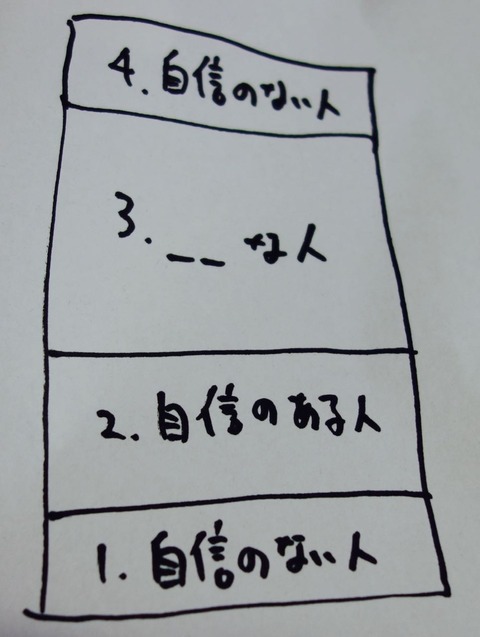 4. 自信のない人
3. __ な人
2. 自信のある人
1. 自信のない人